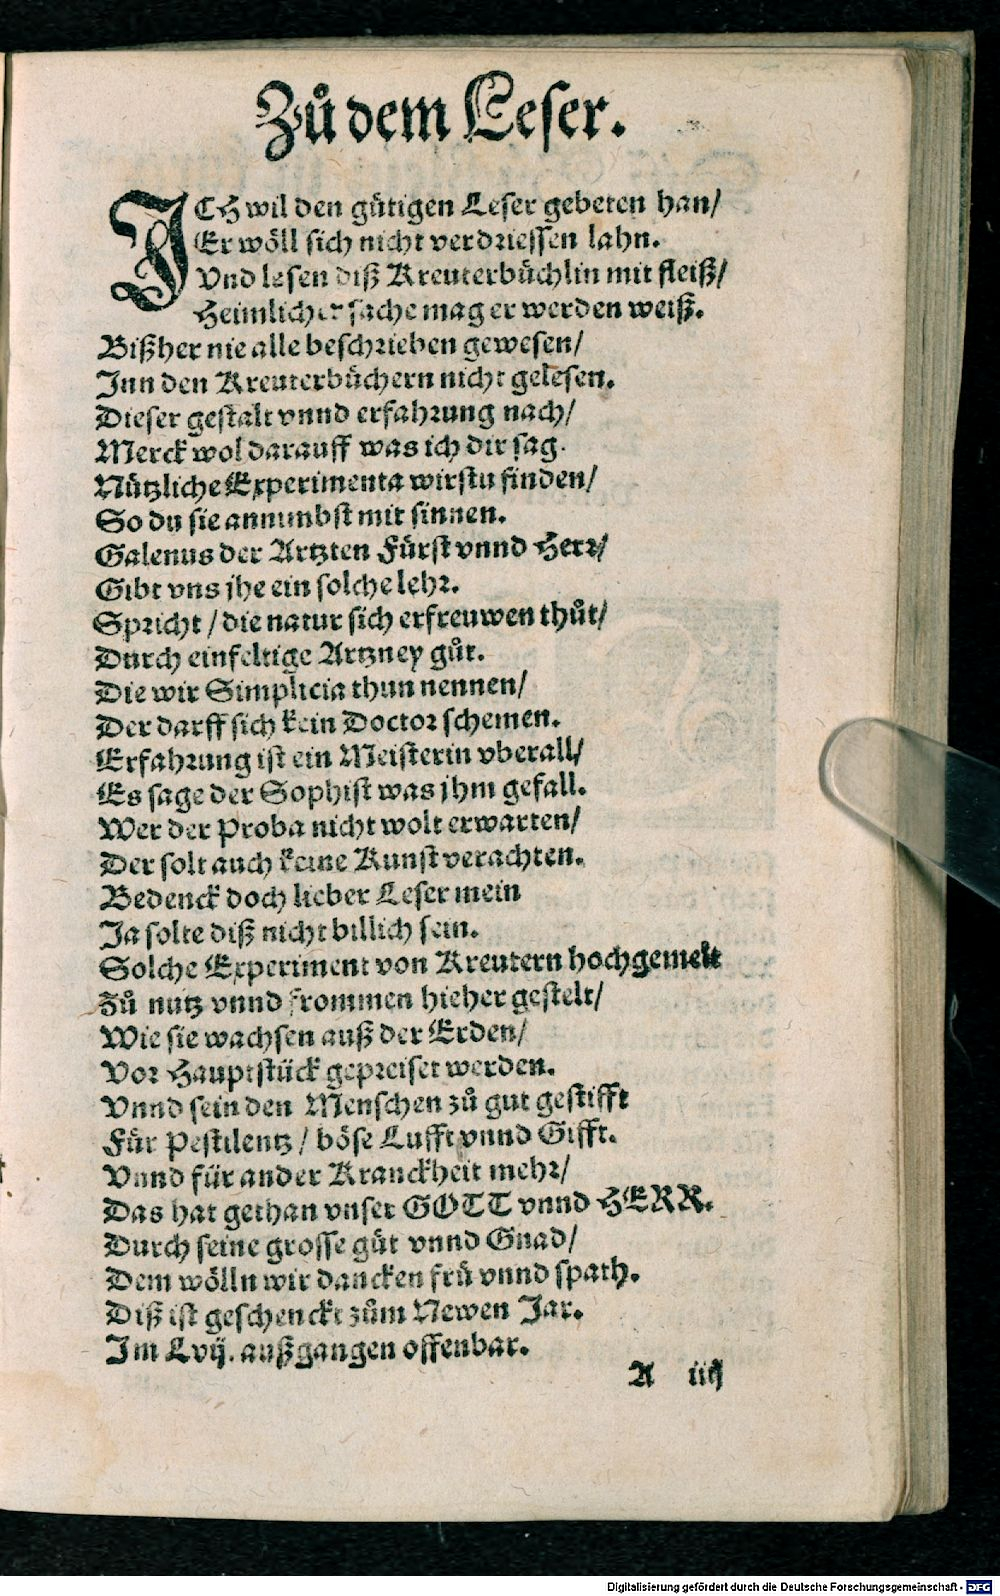 Zů dem Leser.
ICH wil den gütigen Leser gebeten han/
Er wöll sich nicht verdriessen lahn.
Vnd lesen diß Kreuterbüchlin mit fleiß/
Heimlicher sache mag er werden weiß.
Bißher nie alle beschrieben gewesen/
Jnn den Kreuterbüchern nicht gelesen.
Dieser gestalt vnnd erfahrung nach/
Merck wol darauff was ich dir sag.
Nützliche Experimenta wirstu finden/
So du sie annimbst mit sinnen.
Galenus der Artzten Fürst vnnd Herr/
Gibt vns jhe ein solche lehr.
Spricht / die natur sich erfreuwen thůt/
Durch einfeltige Artzney gůt.
Die wir Simplicia thun nennen/
Der darff sich kein Doctor schemen.
Erfahrung ist ein Meisterin vberall/
Es sage der Sophist was jhm gefall.
Wer der Proba nicht wolt erwarten/
Der solt auch keine Kunst verachten.
Bedenck doch lieber Leser mein
Ja solte diß nicht billich sein.
Solche Experiment von Kreutern hochgemelt
Zů nutz vnnd frommen hieher gestelt/
Wie sie wachsen auß der Erden/
Vor Hauptstück gepreiset werden.
Vnnd sein den Menschen zů gut gestifft
Für Pestilentz / böse Lufft vnnd Gifft.
Vnnd für ander Kranckheit mehr/
Das hat gethan vnser GOTT vnnd HERR.
Durch seine grosse güt vnnd Gnad/
Dem wölln wir dancken frü vnnd spath.
Diß ist geschenckt zům Newen Jar.
Jm Lvij. außgangen offenbar.
A iiij
Digitalisierung gefördert durch die Deutsche Forschungsgemeinschaft - DFG